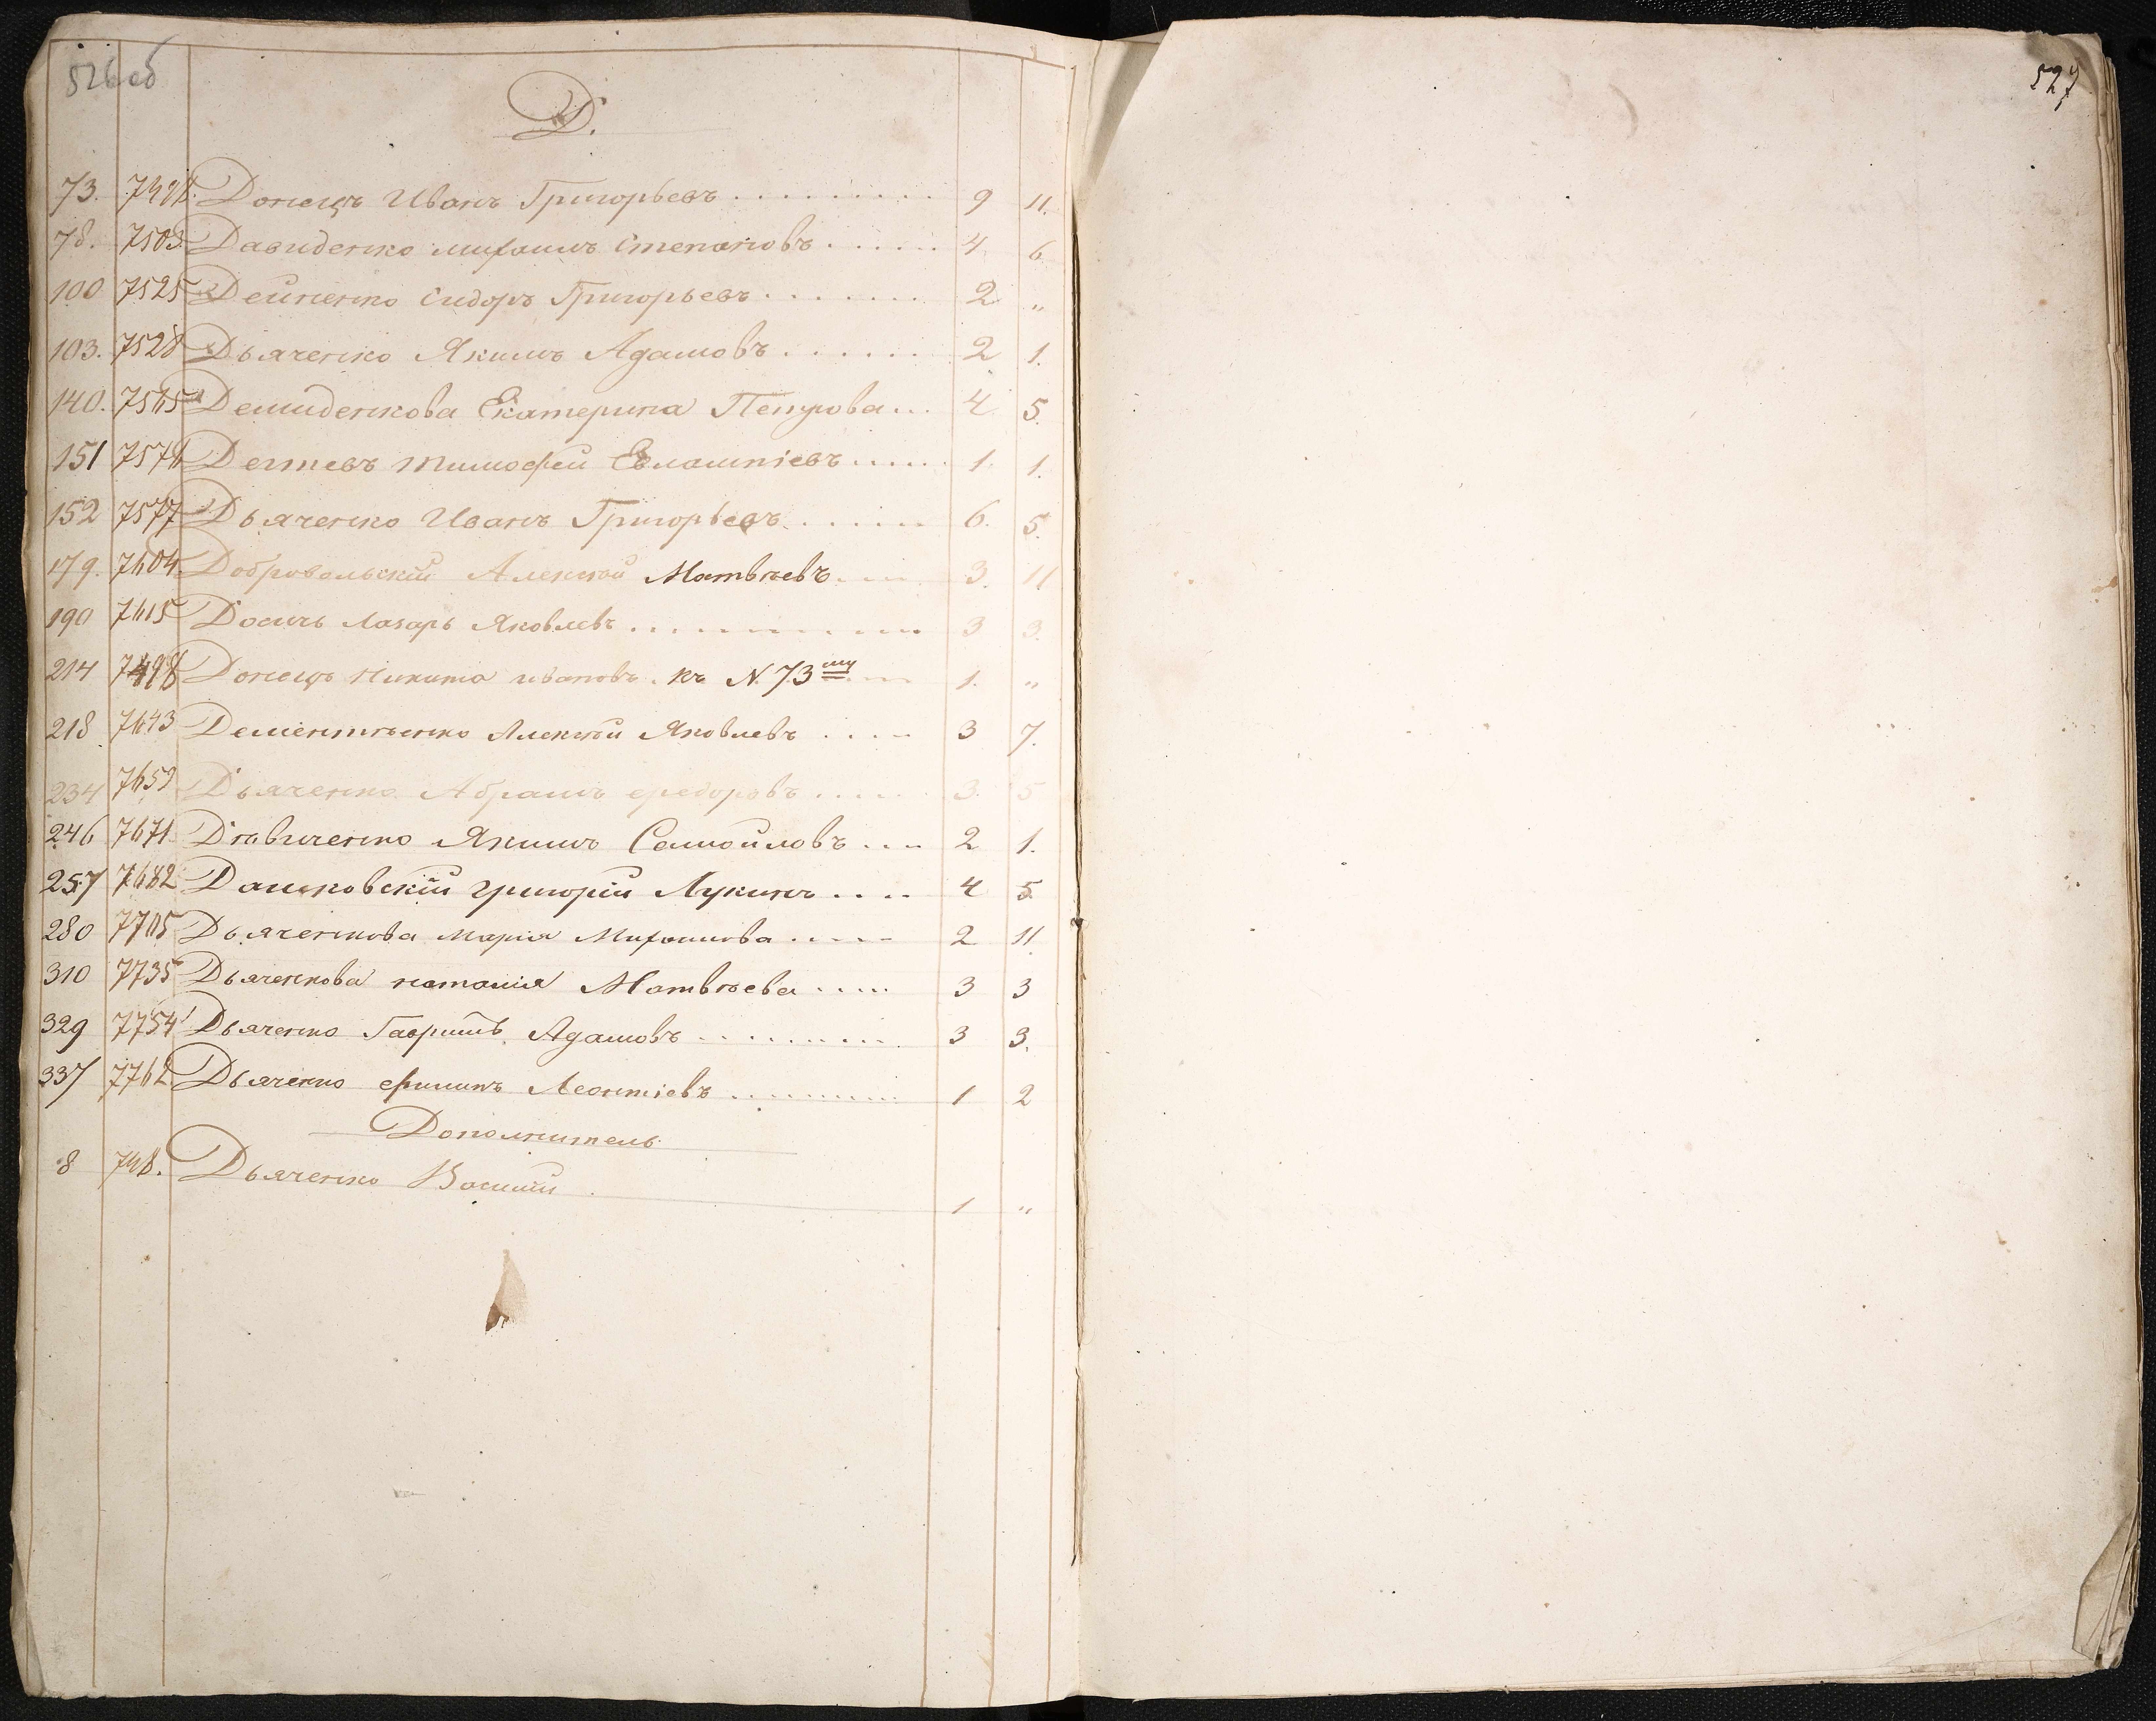 526 об
Д.
73. 7498. Донецъ Иванъ Григорьевъ 9 11.
78. 7503. Давиденко михаилъ степановъ 4. 6
100 7525 Дейненко сидоръ Григорьевъ 2 "
103. 7528 Дьяченко Якимъ Адамовъ 2 1.
140. 7565 Демиденкова Екатерина Петрова 4 5.
151 7576 Дегтевъ тимофей Евлампіевъ 1. 1.
152 7577 Дьяченко Иванъ Григорьевъ 6. 5.
179. 7604 Добровольскій Алексѣй Матвѣевъ 3. 11
190 7615 Лазарь Яковлевъ 3 3.
214 7498 Донецъ никита ивановъ къ N. 73му 1. "
218 7643 Дементѣенко Алексѣй Яковлевъ 3 7.
234 7659 Дьяченко Абрамъ федоровъ 3. 5
246 7671. Дѣвиченко Якимъ Самойловъ 2 1.
257 7682 Дашковскій григорій Лукинъ 4 5
280 7705 Дьяченкова Марія Михаилова 2 11.
310 7735 Дьяченкова наталия Матвѣева 3 3
329 7754 Дьяченко Гаврiилъ Адамовъ 3 3.
337 7762 Дьяченко филипъ Леонтіевъ 1 2
Дополнитель.
8 748. Дьяченко Василій 1 "
527